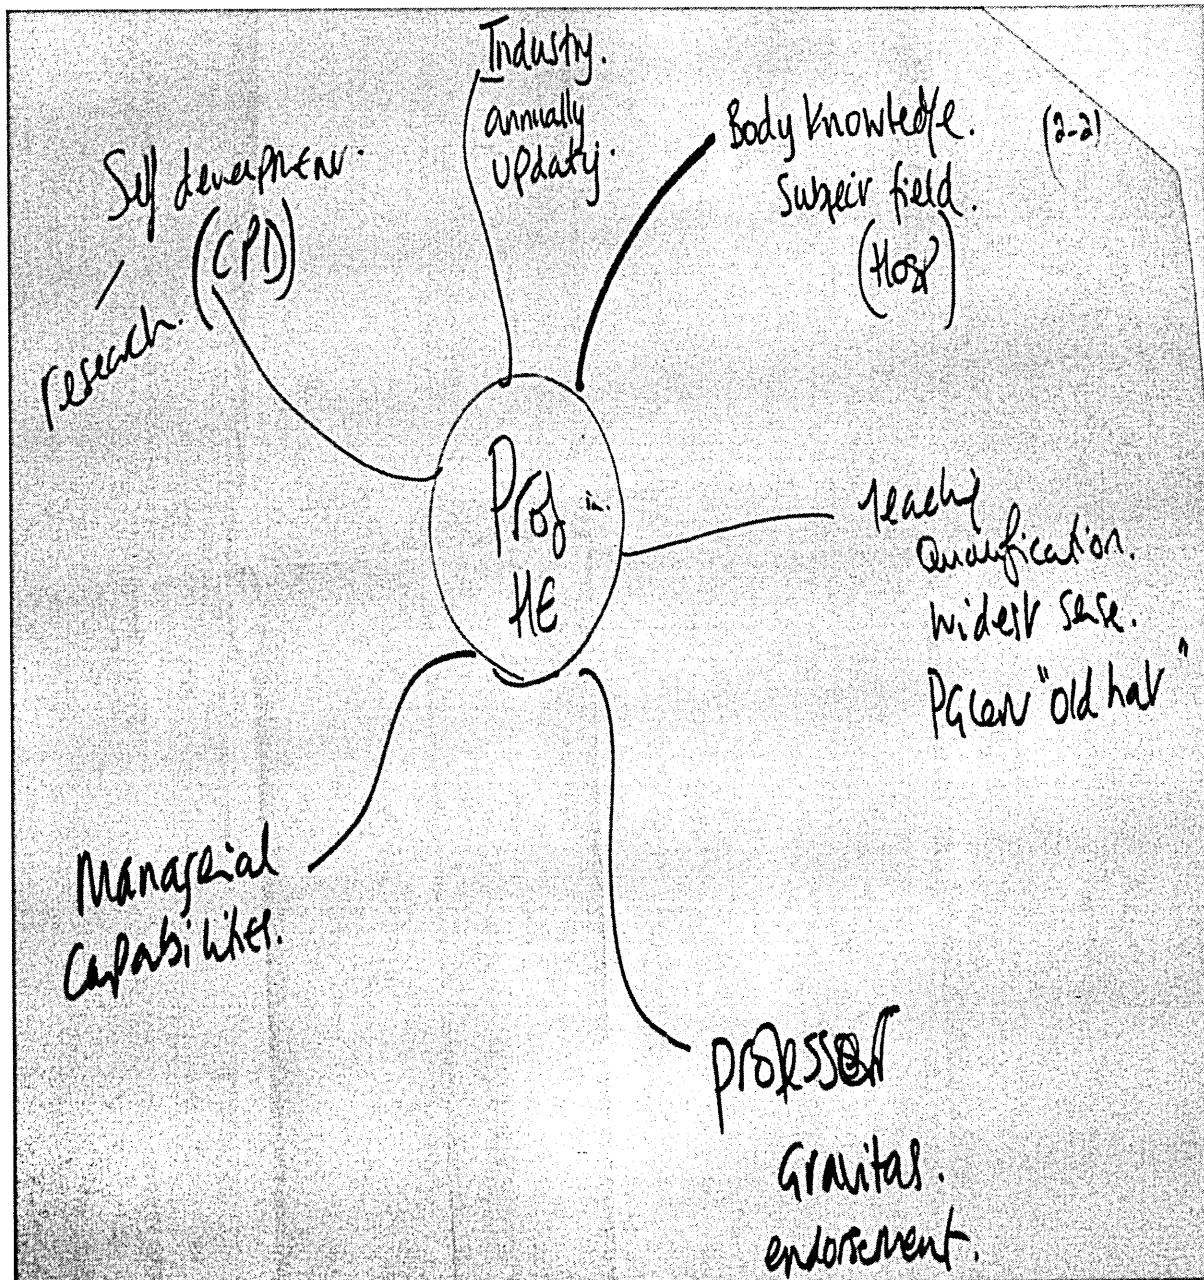 Industry.
annually
updating.
Body knowledge.
(2-2)
Subject field.
(Hosp)
Self development.
(CPD)
research.
Prof in.
HE
Teaching
Qualification.
widest sense.
PGCert "old hat"
Managerial
Capabilities.
professor
Gravitas.
endorsement.